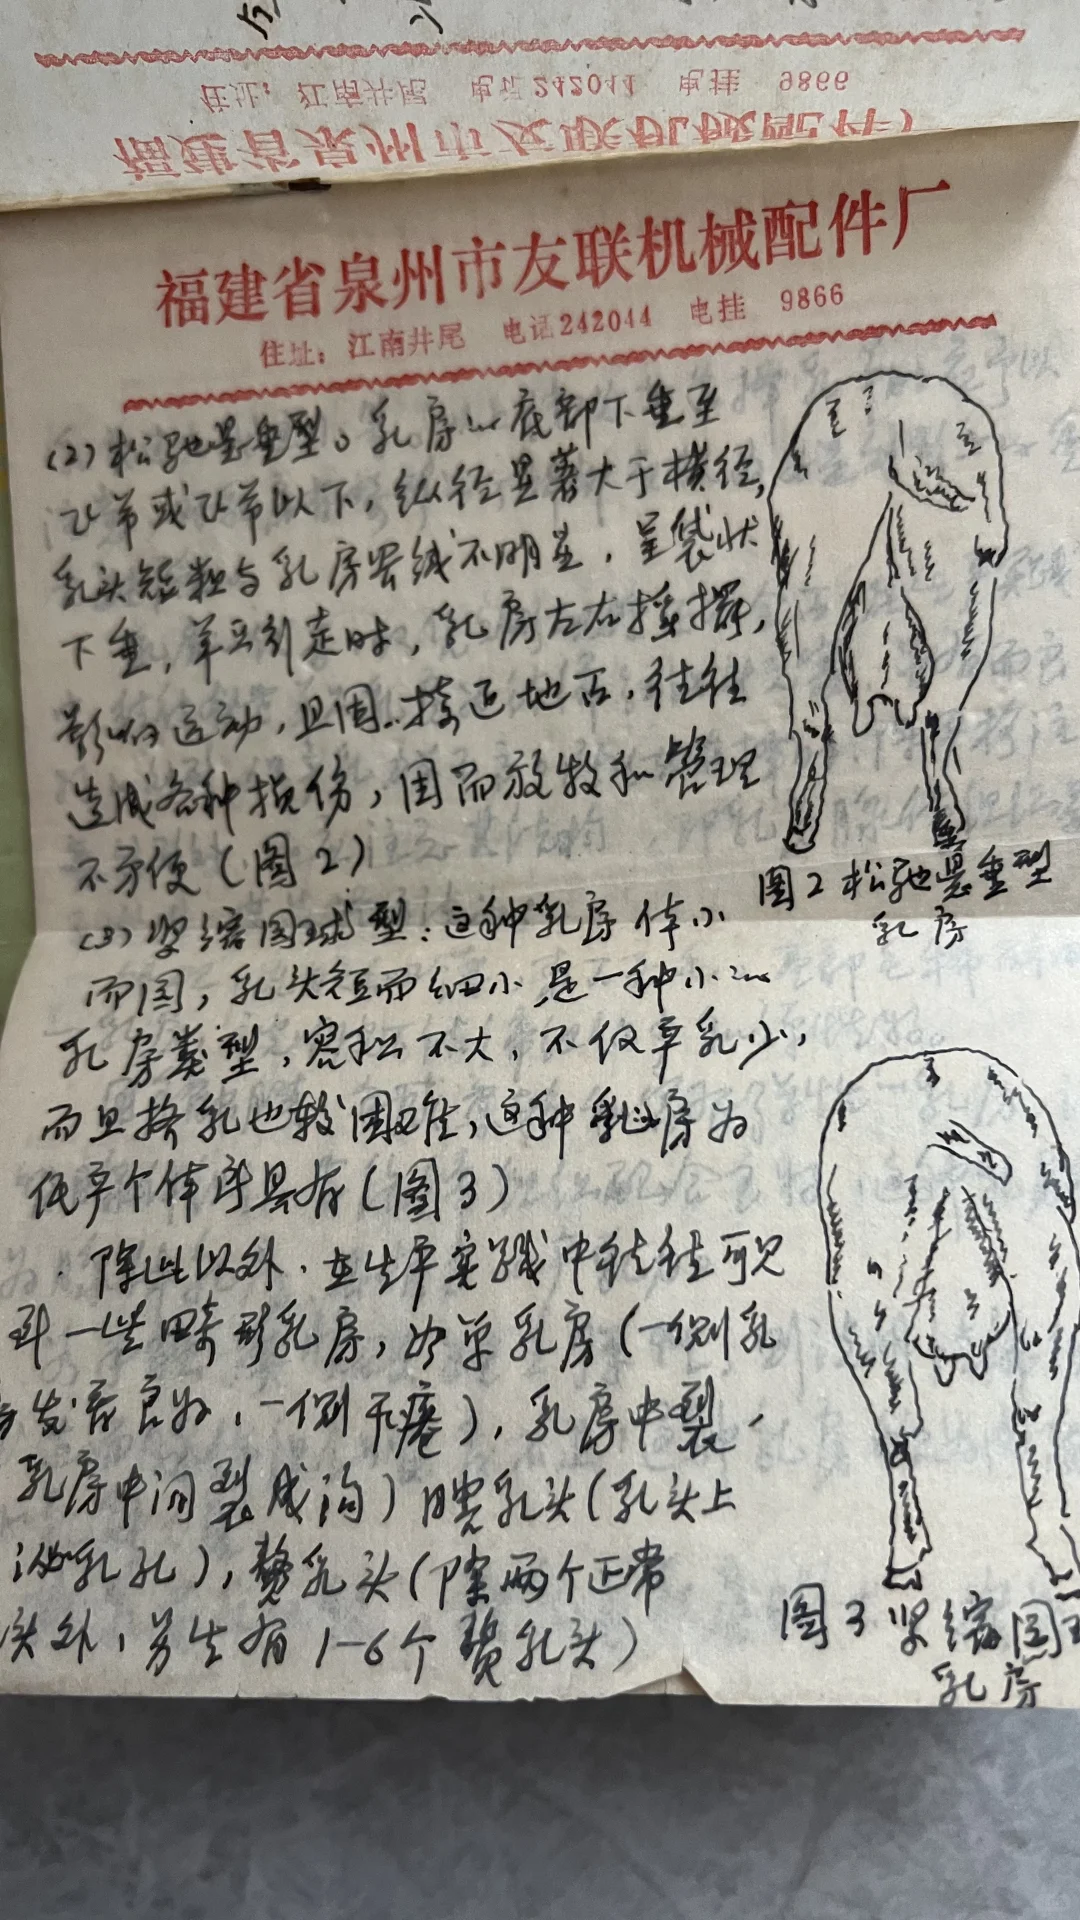 住址：江南井尾 电话242044 电挂 9866
福建省泉州市友联机械配件厂
福建省泉州市友联机械配件厂
住址：江南井尾 电话242044 电挂 9866
(2)松驰悬垂型。乳房的底部下垂至
飞节或飞节以下，纵径显著大于横径，
乳头短粗与乳房界线不明显，呈袋状
下垂，羊只行走时，乳房左右摇摆，
影响运动，且因接近地面，往往
造成各种损伤，因而放牧和管理
不方便（图2）
图2 松驰悬垂型
乳房
(3)紧缩圆球型：这种乳房体小
而圆，乳头短而细小是一种小的
乳房类型，容积不大，不仅产乳少，
而且挤乳也较困难，这种乳房为
低产个体所具有（图3）
除此以外，在生产实践中往往可见
到一些畸形乳房，如单乳房（一侧乳
发育良好，一侧干瘪），乳房中裂，
乳房中间裂成沟）瞎乳头（乳头上
没乳孔），赘乳头（除两个正常
头外，另生有1-6个赘乳头）
图3 紧缩圆
乳房